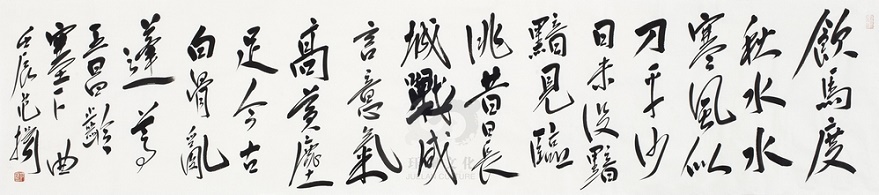 飲馬度
秋水水
寒風似
刀平沙
日未没黯
黯見臨
洮昔日長
城戰咸
言意氣
高黃塵
足今古
白骨亂
蓬蒿
王昌齡
塞下曲
壬辰